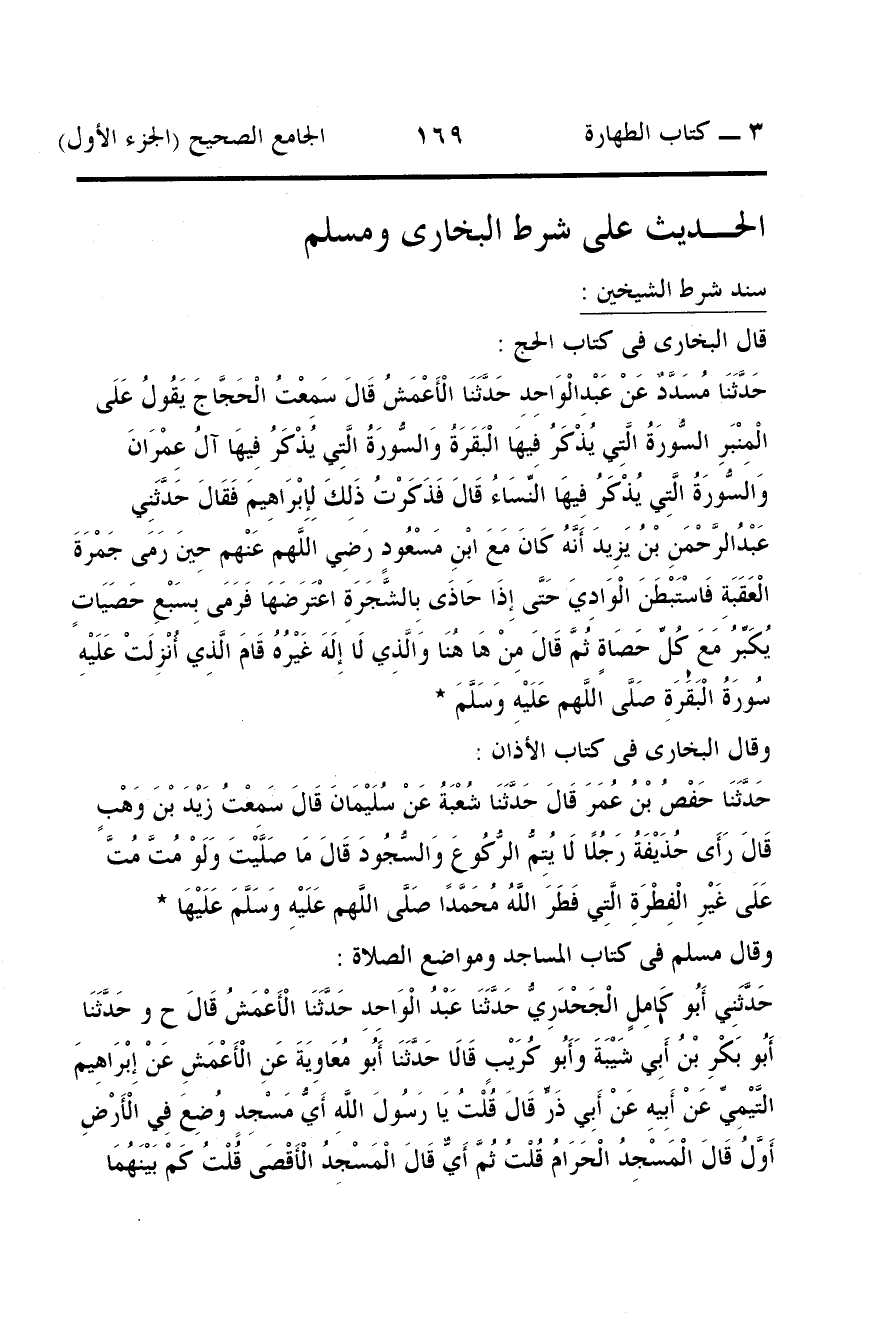 ٣ ــ كتاب الطهارة ١٦٩ الجامع الصحيح (الجزء الأول)
الحـــديث على شرط البخارى ومسلم
سند شرط الشيخين :
قال البخارى فى كتاب الحج :
حَدَّثَنَا مُسَدَّدٌ عَنْ عَبْدِالْوَاحِدِ حَدَّثَنَا الْأَعْمَشُ قَالَ سَمِعْتُ الْحَجَّاجَ يَقُولُ عَلَى
الْمِنْبَرِ السُّورَةُ الَّتِي يُذْكَرُ فِيهَا الْبَقَرَةُ وَالسُّورَةُ الَّتِي يُذْكَرُ فِيهَا آلُ عِمْرَانَ
وَالسُّورَةُ الَّتِي يُذْكَرُ فِيهَا النِّسَاءُ قَالَ فَذَكَرْتُ ذَلِكَ لِإِبْرَاهِيمَ فَقَالَ حَدَّثَنِي
عَبْدُالرَّحْمَنِ بْنُ يَزِيدَ أَنَّهُ كَانَ مَعَ ابْنِ مَسْعُودٍ رَضِي اللَّهم عَنْهم حِينَ رَمَى جَمْرَةَ
الْعَقَبَةِ فَاسْتَبْطَنَ الْوَادِيَ حَتَّى إِذَا حَاذَى بِالشَّجَرَةِ اعْتَرَضَهَا فَرَمَى بِسَبْعِ حَصَيَاتٍ
يُكَبِّرُ مَعَ كُلِّ حَصَاةٍ ثُمَّ قَالَ مِنْ هَا هُنَا وَالَّذِي لَا إِلَهَ غَيْرُهُ قَامَ الَّذِي أُنْزِلَتْ عَلَيْهِ
سُورَةُ الْبَقَرَةِ صَلَّى اللهم عَلَيْهِ وَسَلَّمَ *
وقال البخارى فى كتاب الأذان :
حَدَّثَنَا حَفْصُ بْنُ عُمَرَ قَالَ حَدَّثَنَا شُعْبَةُ عَنْ سُلَيْمَانَ قَالَ سَمِعْتُ زَيْدَ بْنَ وَهْبٍ
قَالَ رَأَى حُذَيْفَةُ رَجُلًا لَا يُتِمُّ الرُّكُوعَ وَالسُّجُودَ قَالَ مَا صَلَّيْتَ وَلَوْ مُتَّ مُتَّ
عَلَى غَيْرِ الْفِطْرَةِ الَّتِي فَطَرَ اللَّهُ مُحَمَّدًا صَلَّى اللهم عَلَيْهِ وَسَلَّمَ عَلَيْهَا *
وقال مسلم فى كتاب المساجد ومواضع الصلاة :
حَدَّثَنِي أَبُو كَامِلٍ الْجَحْدَرِيُّ حَدَّثَنَا عَبْدُ الْوَاحِدِ حَدَّثَنَا الْأَعْمَشُ قَالَ ح و حَدَّثَنَا
أَبُو بَكْرِ بْنُ أَبِي شَيْبَةَ وَأَبُو كُرَيْبٍ قَالَا حَدَّثَنَا أَبُو مُعَاوِيَةَ عَنِ الْأَعْمَشِ عَنْ إِبْرَاهِيمَ
التَّيْمِيِّ عَنْ أَبِيهِ عَنْ أَبِي ذَرٍّ قَالَ قُلْتُ يَا رَسُولَ اللَّهِ أَيُّ مَسْجِدٍ وُضِعَ فِي الْأَرْضِ
أَوَّلُ قَالَ الْمَسْجِدُ الْحَرَامُ قُلْتُ ثُمَّ أَيٌّ قَالَ الْمَسْجِدُ الْأَقْصَى قُلْتُ كَمْ بَيْنَهُمَا